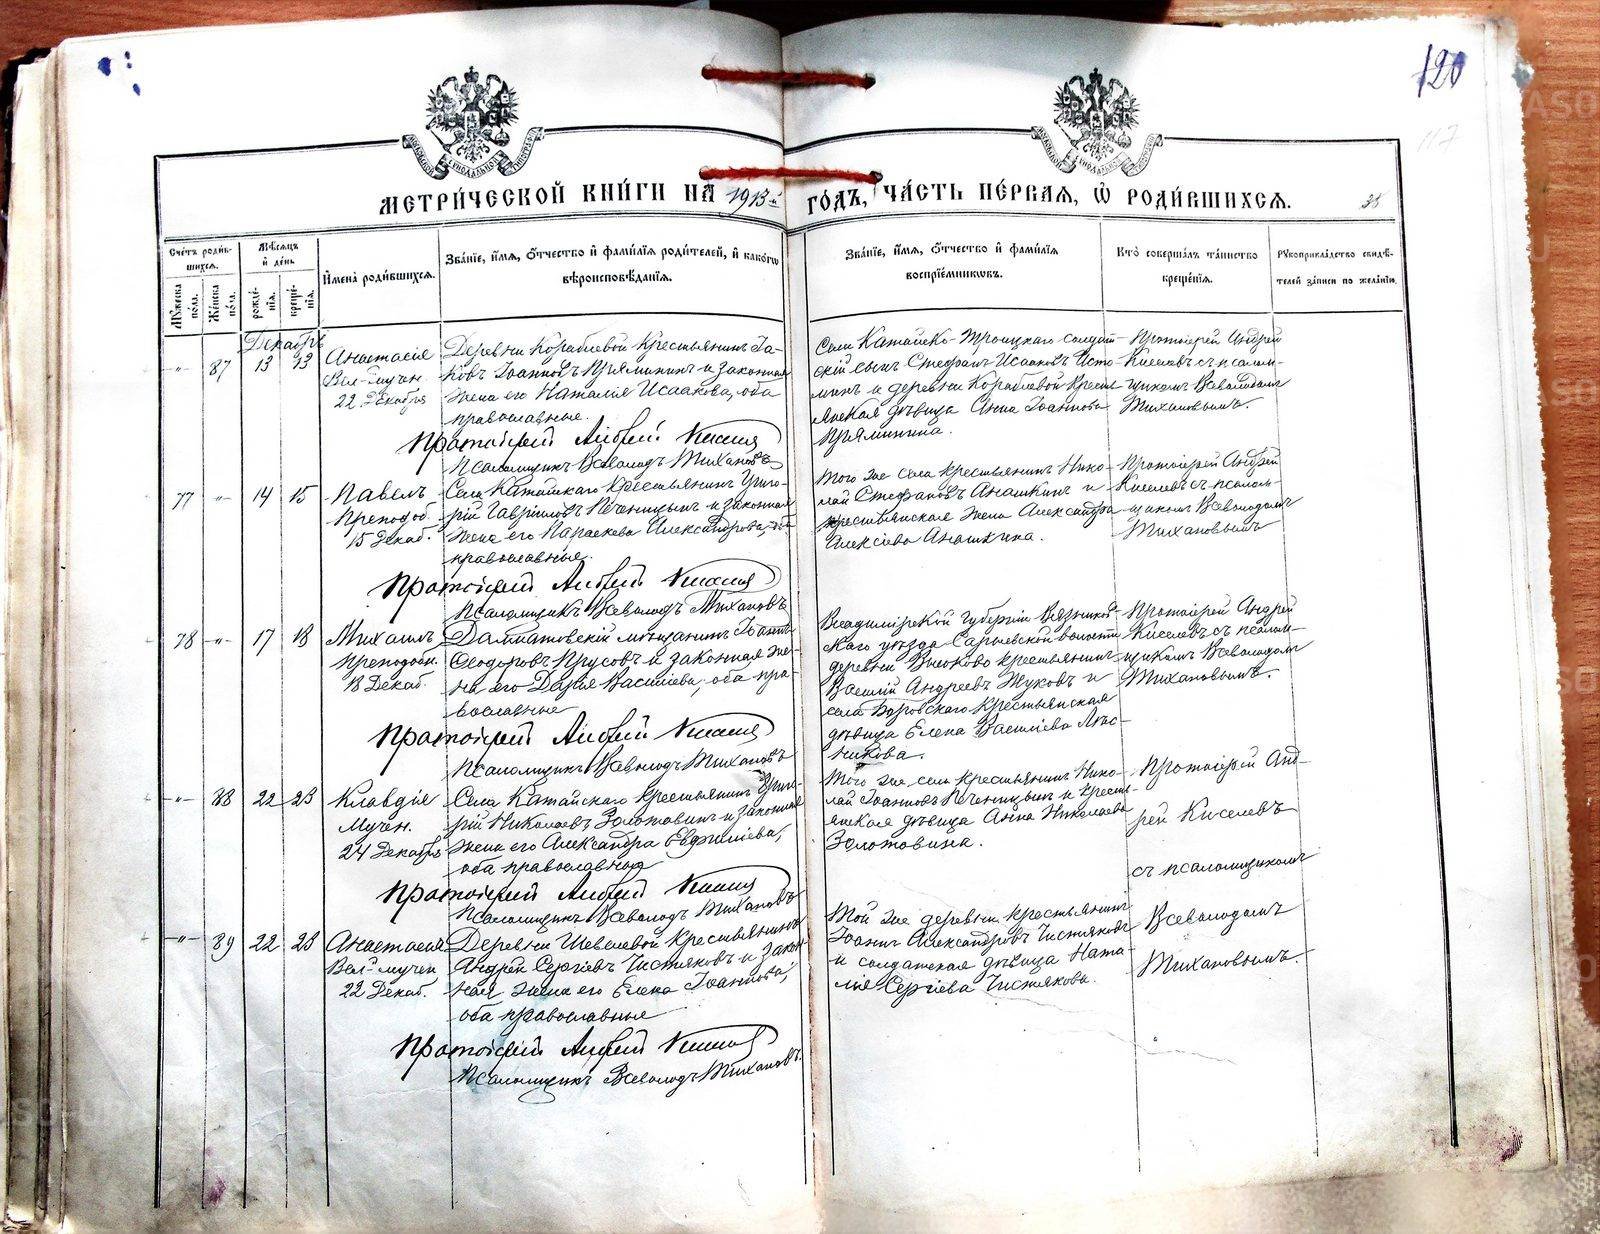 120
117
МОСКОВСКОЙ СѴНОДАЛЬНОЙ ТИПОГРАФІИ
МОСКОВСКОЙ СѴНОДАЛЬНОЙ ТИПОГРАФІИ
МЕТРИ́ЧЕСКОЙ КНИ́ГИ НА 1913-й ГО́ДЪ, ЧА́СТЬ ПЕ́РВАЯ, Ѡ҆ РОДИ́ВШИХСЯ.
Сче́тъ роди́в-
шихся.
Мꙋ́жеска по́ла.
Же́нска по́ла.
Мѣ́сяцъ
и҆ де́нь
рожде́-
нїѧ.
креще́-
нїѧ.
И҆мена̀ роди́вшихся.
Зва́нїе, и҆́мѧ, ѻ҆́тчество и҆ фамѝлїѧ роди́телей, и҆ како́гѡ
вѣроисповѣ́данїѧ.
Зва́нїе, и҆́мѧ, ѻ҆́тчество и҆ фамѝлїѧ
воспрїе́мникѡвъ.
Кто̀ соверша́лъ та́инство
креще́нїѧ.
Рꙋкоприкла́дство свидѣ́-
телей за́писи по жела́нїю.
Декабрь
-"- 87 13 13
Анастасія
Вел-мучен
22 Декабря
Деревни Кораблевой крестьянинъ Іа-
ковъ Іоанновъ Пряминин и законная
жена его Наталія Исаакова, оба
православные.
Протоіерей Андрей Киселев
Псаломщикъ Всеволодъ Тихановъ
Села Катайско-Троицкаго солдат-
скій сынъ Стефанъ Исааковъ Исто-
минъ и деревни Кораблевой кресть-
янская дѣвица Анна Іоаннова
Пряминина.
Протоіерей Андрей
Киселевъ съ псалом-
щикомъ Всеволодомъ
Тихановымъ.
77 -"- 14 15
Павелъ
Преподоб.
15 Декаб.
Села Катайскаго крестьянинъ Григо-
рій Гавріиловъ Печеницынъ и законная
жена его Параскева Александрова, оба
православные.
Протоіерей Андрей Киселев
Псаломщикъ Всеволодъ Тихановъ
Того же села крестьянинъ Нико-
лай Стефановъ Анашкинъ и
крестьянская жена Александра
Алексіева Анашкина.
Протоіерей Андрей
Киселевъ съ псалом-
щикомъ Всеволодомъ
Тихановымъ
78 -"- 17 18
Михаилъ
Преподобн.
18 Декаб.
Далматовскій мѣщанинъ Іоаннъ
Ѳеодоровъ Прусовъ и законная же-
на его Дарья Василіева, оба пра-
вославные
Протоіерей Андрей Киселев
Псаломщикъ Всеволодъ Тихановъ
Владимірской губерніи Вязников-
скаго уѣзда Сарыевской волости
деревни Высоково крестьянинъ
Василій Андреевъ Жуковъ и
села Боровскаго крестьянская
дѣвица Елена Василіева Лѣс-
никова.
Протоіерей Андрей
Киселевъ съ псалом-
щикомъ Всеволодомъ
Тихановымъ.
-"- 88 22 23
Клавдія
Мучен.
24 Декабрь
Села Катайскаго крестьянинъ Григо-
рій Николаевъ Золотовинъ и законная
жена его Александра Евфиміева,
оба православные
Протоіерей Андрей Киселев
Псаломщикъ Всеволодъ Тихановъ
Того же села крестьянинъ Нико-
лай Іоанновъ Печеницынъ и кресть-
янская дѣвица Анна Николаева
Золотовина.
Протоіерей Анд-
рей Киселевъ
съ псаломщикомъ
Всеволодомъ
Тихановымъ.
-"- 89 22 23
Анастасія
Вел-мучен
22 Декаб.
Деревни Шевелевой крестьянинъ
Андрей Сергіевъ Чистяковъ и закон-
ная жена его Елена Іоаннова,
оба православные
Протоіерей Андрей Киселев
Псаломщикъ Всеволодъ Тихановъ.
Той же деревни крестьянинъ
Іоаннъ Александровъ Чистяковъ
и солдатская дѣвица Ната-
лія Сергіева Чистякова.